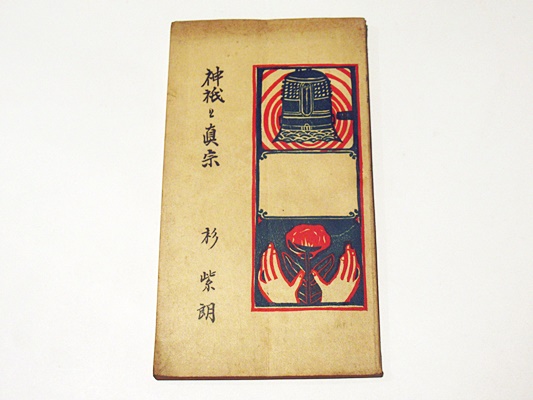 神祇と真宗
杉紫朗